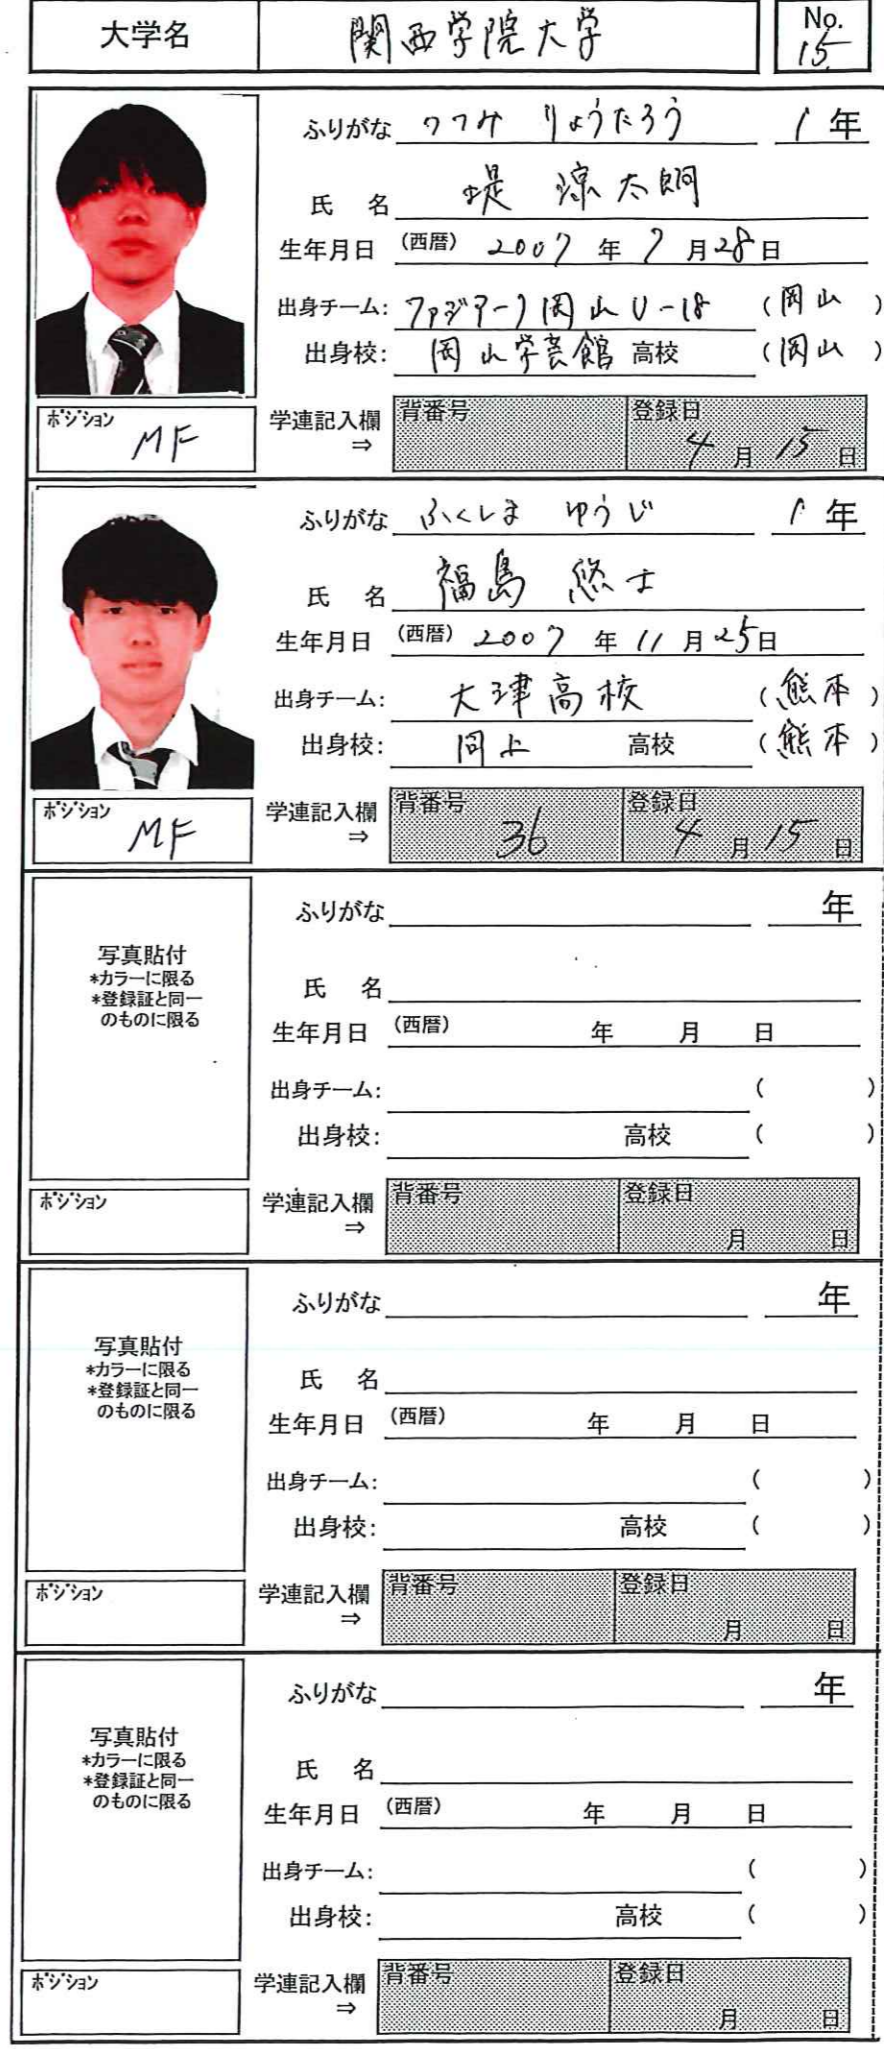 大学名 関西学院大学 No. 15
ふりがな つつみ りょうたろう 1年
氏 名 堤 涼太朗
生年月日 (西暦) 2007年7月28日
出身チーム: ファジアーノ岡山U-18 (岡山)
出身校: 岡山学芸館 高校 (岡山)
ポジション MF 学連記入欄⇒ 背番号 登録日 4月15日
ふりがな ふくしま ゆうじ 1年
氏 名 福島 悠士
生年月日 (西暦) 2007年11月25日
出身チーム: 大津高校 (熊本)
出身校: 同上 高校 (熊本)
ポジション MF 学連記入欄⇒ 背番号 36 登録日 4月15日
ふりがな 年
写真貼付
*カラーに限る
*登録証と同一
のものに限る
氏 名
生年月日 (西暦) 年 月 日
出身チーム: ( )
出身校: 高校 ( )
ポジション 学連記入欄⇒ 背番号 登録日 月 日
ふりがな 年
写真貼付
*カラーに限る
*登録証と同一
のものに限る
氏 名
生年月日 (西暦) 年 月 日
出身チーム: ( )
出身校: 高校 ( )
ポジション 学連記入欄⇒ 背番号 登録日 月 日
ふりがな 年
写真貼付
*カラーに限る
*登録証と同一
のものに限る
氏 名
生年月日 (西暦) 年 月 日
出身チーム: ( )
出身校: 高校 ( )
ポジション 学連記入欄⇒ 背番号 登録日 月 日